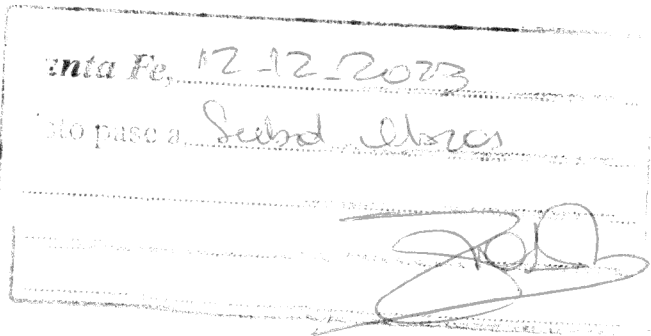 nta Fe, 12-12-2023
sto pase a Subd Obras